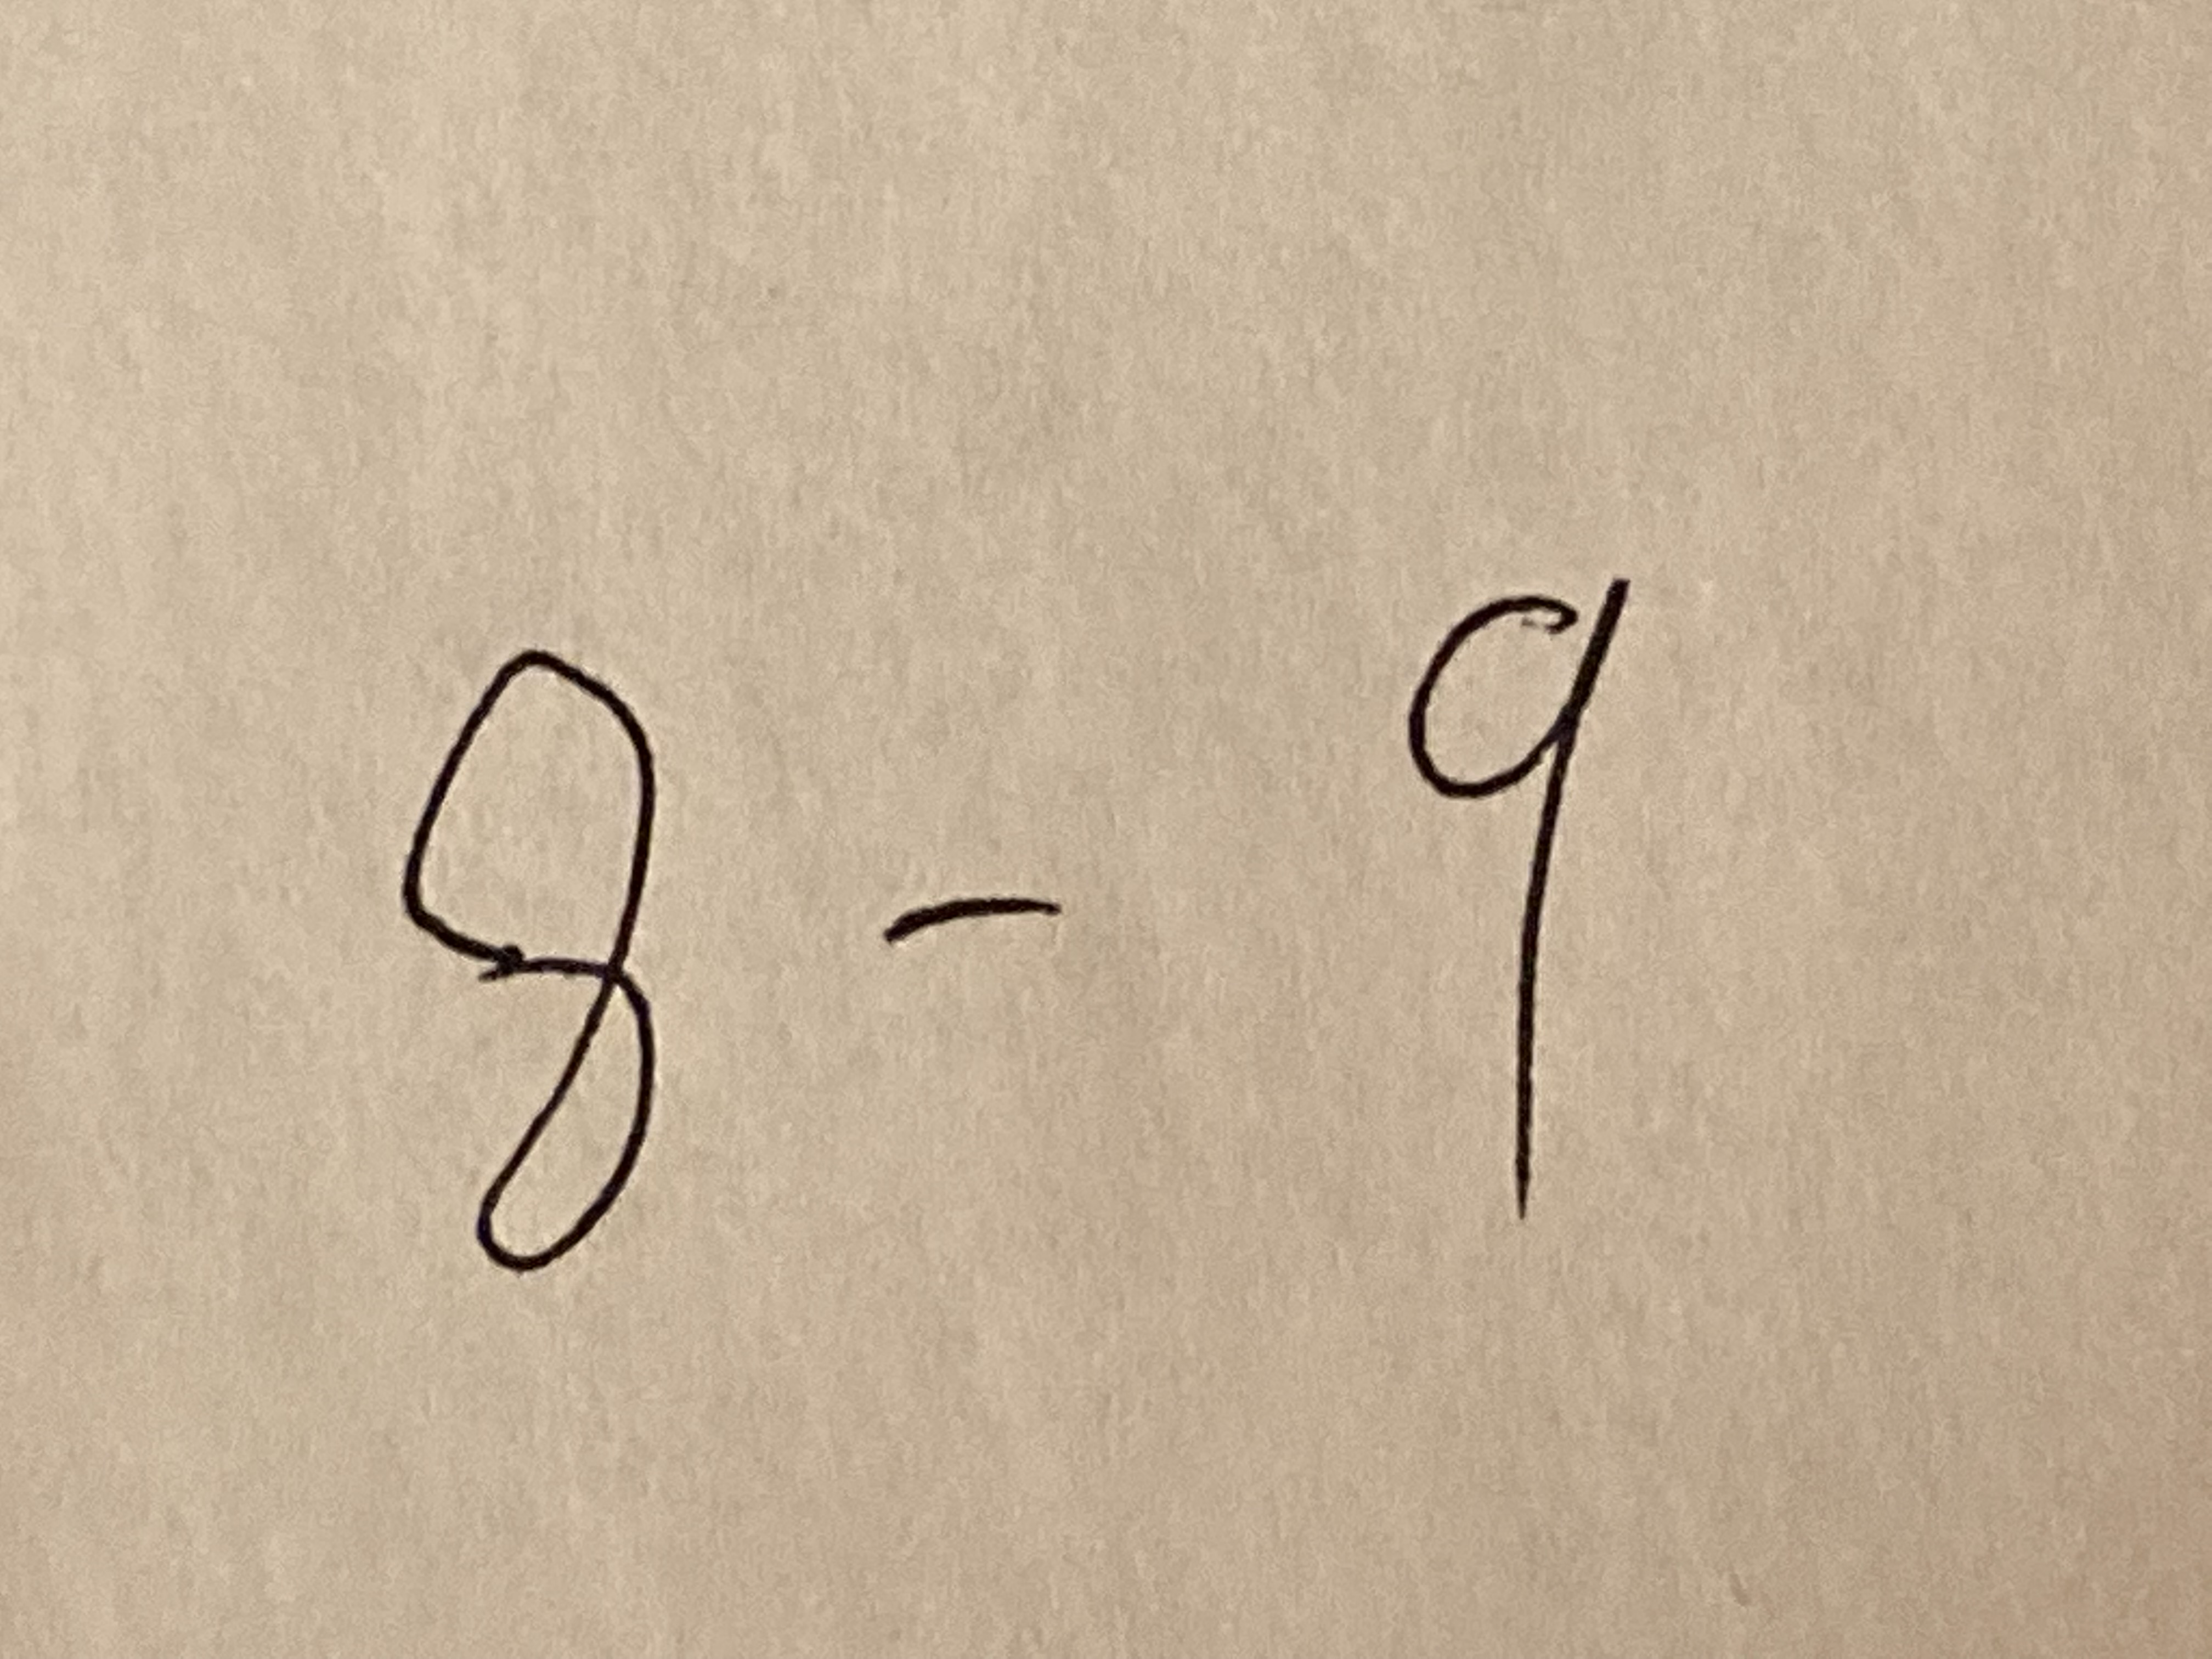 8 - 9